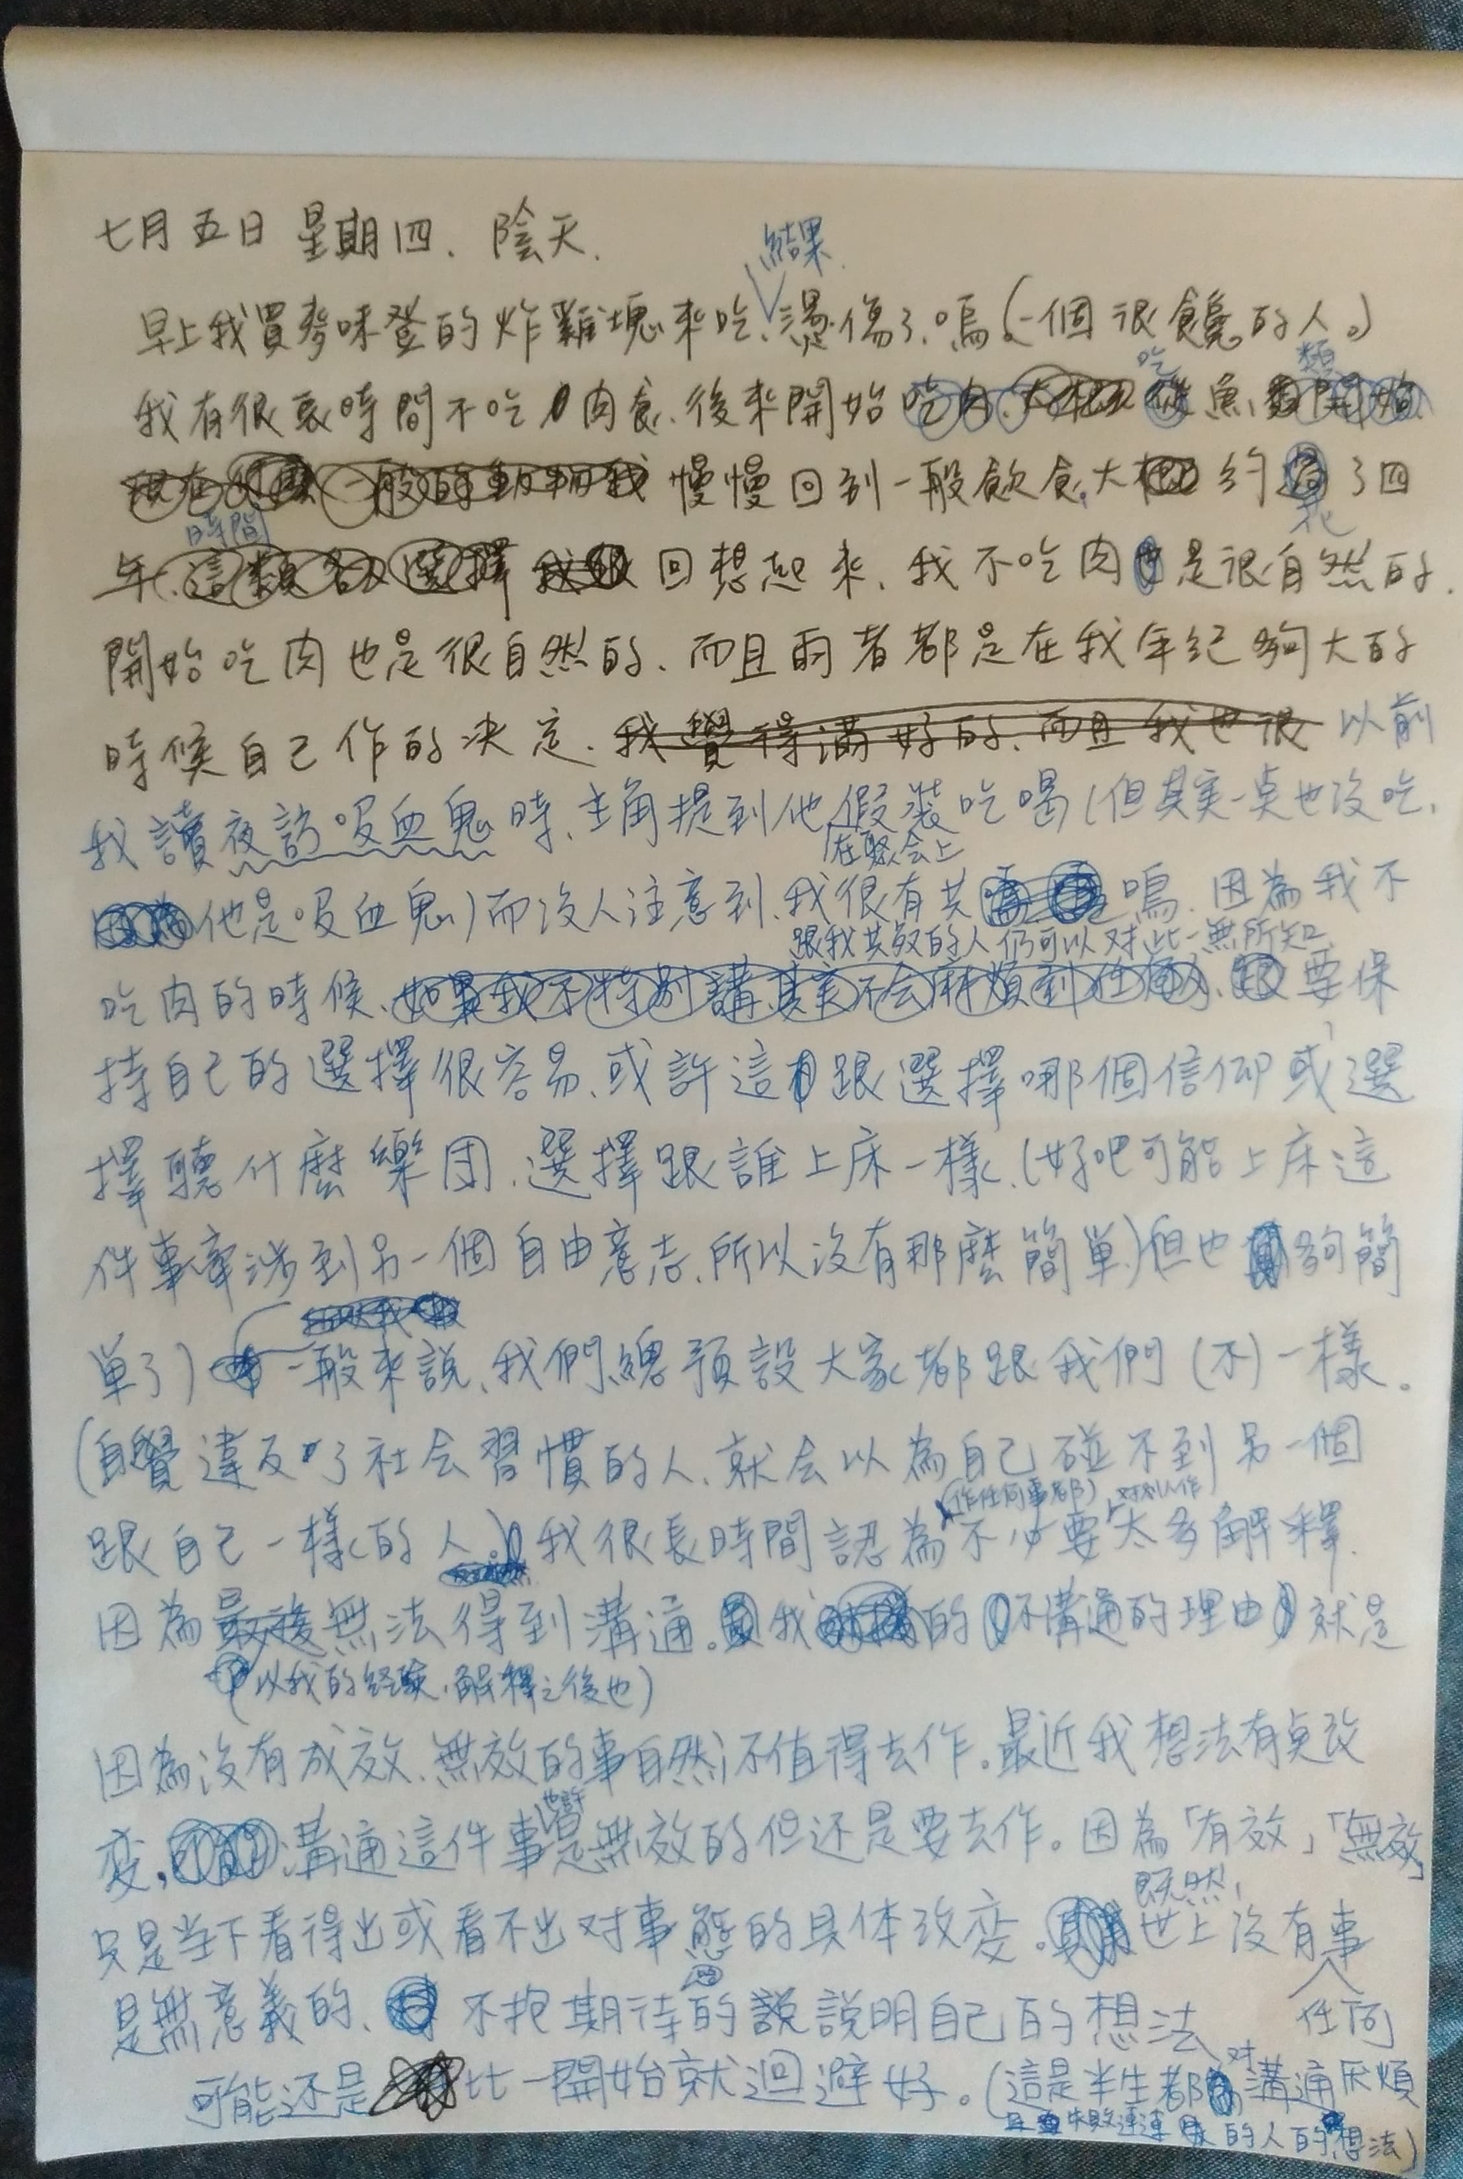 七月五日 星期四、陰天.
結果
早上我買麥味登的炸雞塊來吃、燙傷了、嗚(一個很饞的人。)
吃 類
我有很長時間不吃肉食、後來開始魚、
慢慢回到一般飲食,大約了四
時間 花
年、回想起來、我不吃肉是很自然的.
開始吃肉也是很自然的、而且兩者都是在我年紀夠大的
時候自己作的決定、我覺得滿好的、而且我也很 以前
我讀夜訪吸血鬼時、主角提到他假裝吃喝(但其實一點也沒吃、
在聚会上
他是吸血鬼)而沒人注意到、我很有共鳴、因為我不
跟我共餐的人仍可以对此一無所知
吃肉的時候、如果我不特別講、其實不会麻煩到任何人、要保
持自己的選擇很容易、或許這跟選擇哪個信仰或選
擇聽什麼樂团、選擇跟誰上床一樣、(好吧可能上床這
件事牽涉到另一個自由意志、所以沒有那麼簡單)但也夠簡
單了)一般來說、我們總預設大家都跟我們(不)一樣。
(自覺違反了社会習慣的人、就会以為自己碰不到另一個
(作任何事都) 对別人作
跟自己一樣的人。)我很長時間認為不必要太多解釋.
因為最後無法得到溝通。我的不溝通的理由就是
(以我的經驗、解釋之後也)
因為沒有成效、無效的事自然不值得去作。最近我想法有点改
也許
变,溝通這件事是無效的但还是要去作。因為「有效」「無效」
既然,
只是当下看得出或看不出对事態的具体改变。世上沒有事
是無意義的、不抱期待的說說明自己的想法 任何
对
可能还是比一開始就迴避好。(這是半生都溝通厌煩
且失敗連連的人的想法)